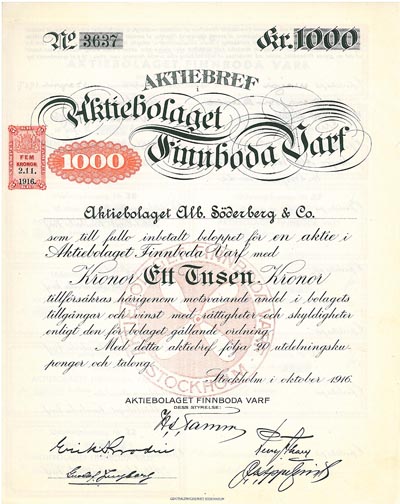 No 3637 Kr. 1000
AKTIEBREF
i
Aktiebolaget
Finnboda Varf
FEM
KRONOR
2.11.
1916.
1000
Aktiebolaget Alb. Söderberg & Co.
som till fullo inbetalt beloppet för en aktie i
Aktiebolaget Finnboda Varf med
Kronor Ett Tusen Kronor
tillförsäkras härigenom motsvarande andel i bolagets
tillgångar och vinst med rättigheter och skyldigheter
enligt den för bolaget gällande ordning.
Med detta aktiebref följa 20 utdelningsku-
ponger och talong.
Stockholm i oktober 1916.
STOCKHOLM
AKTIEBOLAGET FINNBODA VARF
DESS STYRELSE:
Hs. Tamm
Erik Brodin